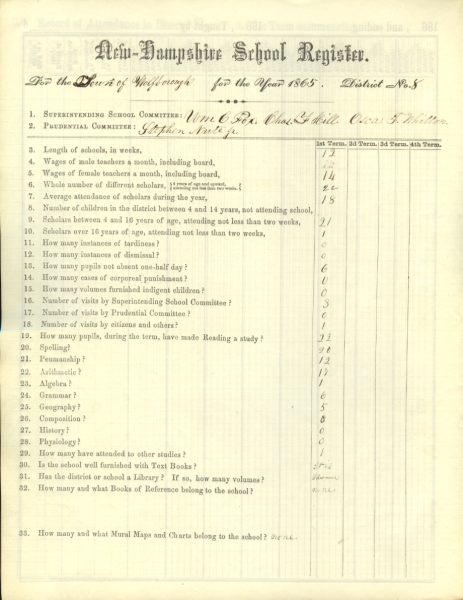 New-Hampshire School Register.
For the Town of Wolfborough for the Year 1865. District No. 8
1. Superintending School Committee: Wm C Fox Chas H Hill Oscar F. Whitton
2. Prudential Committee: Stephen Nute jr.
1st Term. 2d Term. 3d Term. 4th Term.
3. Length of schools, in weeks, 12
4. Wages of male teachers a month, including board,
5. Wages of female teachers a month, including board, 14
6. Whole number of different scholars, { 4 years of age and upward, attending not less than two weeks. } 22
7. Average attendance of scholars during the year, 18
8. Number of children in the district between 4 and 14 years, not attending school,
9. Scholars between 4 and 16 years of age, attending not less than two weeks, 21
10. Scholars over 16 years of age, attending not less than two weeks, 1
11. How many instances of tardiness? 0
12. How many instances of dismissal? 0
13. How many pupils not absent one-half day? 6
14. How many cases of corporeal punishment? 0
15. How many volumes furnished indigent children? 0
16. Number of visits by Superintending School Committee? 3
17. Number of visits by Prudential Committee? 0
18. Number of visits by citizens and others? 1
19. How many pupils, during the term, have made Reading a study? 22
20. Spelling? 20
21. Penmanship? 12
22. Arithmetic? 17
23. Algebra? 1
24. Grammar? 6
25. Geography? 5
26. Composition? 8
27. History? 1
28. Physiology? 0
29. How many have attended to other studies? 1
30. Is the school well furnished with Text Books?
31. Has the district or school a Library? If so, how many volumes?
32. How many and what Books of Reference belong to the school? none
33. How many and what Mural Maps and Charts belong to the school? none.